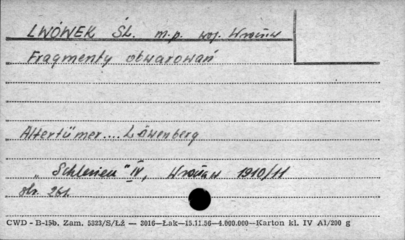 LWÓWEK ŚL. m.p. woj. Wrocław
Fragmenty otwarowań
Altertümer.... Löwenberg
„Schlesien" IV, Wrocław 1910/11
str. 261.
CWD - B-15b. Zam. 5323/S/Łż — 2016—Łak—15.11.56—4.000.000—Karton kl. IV A1/200 g